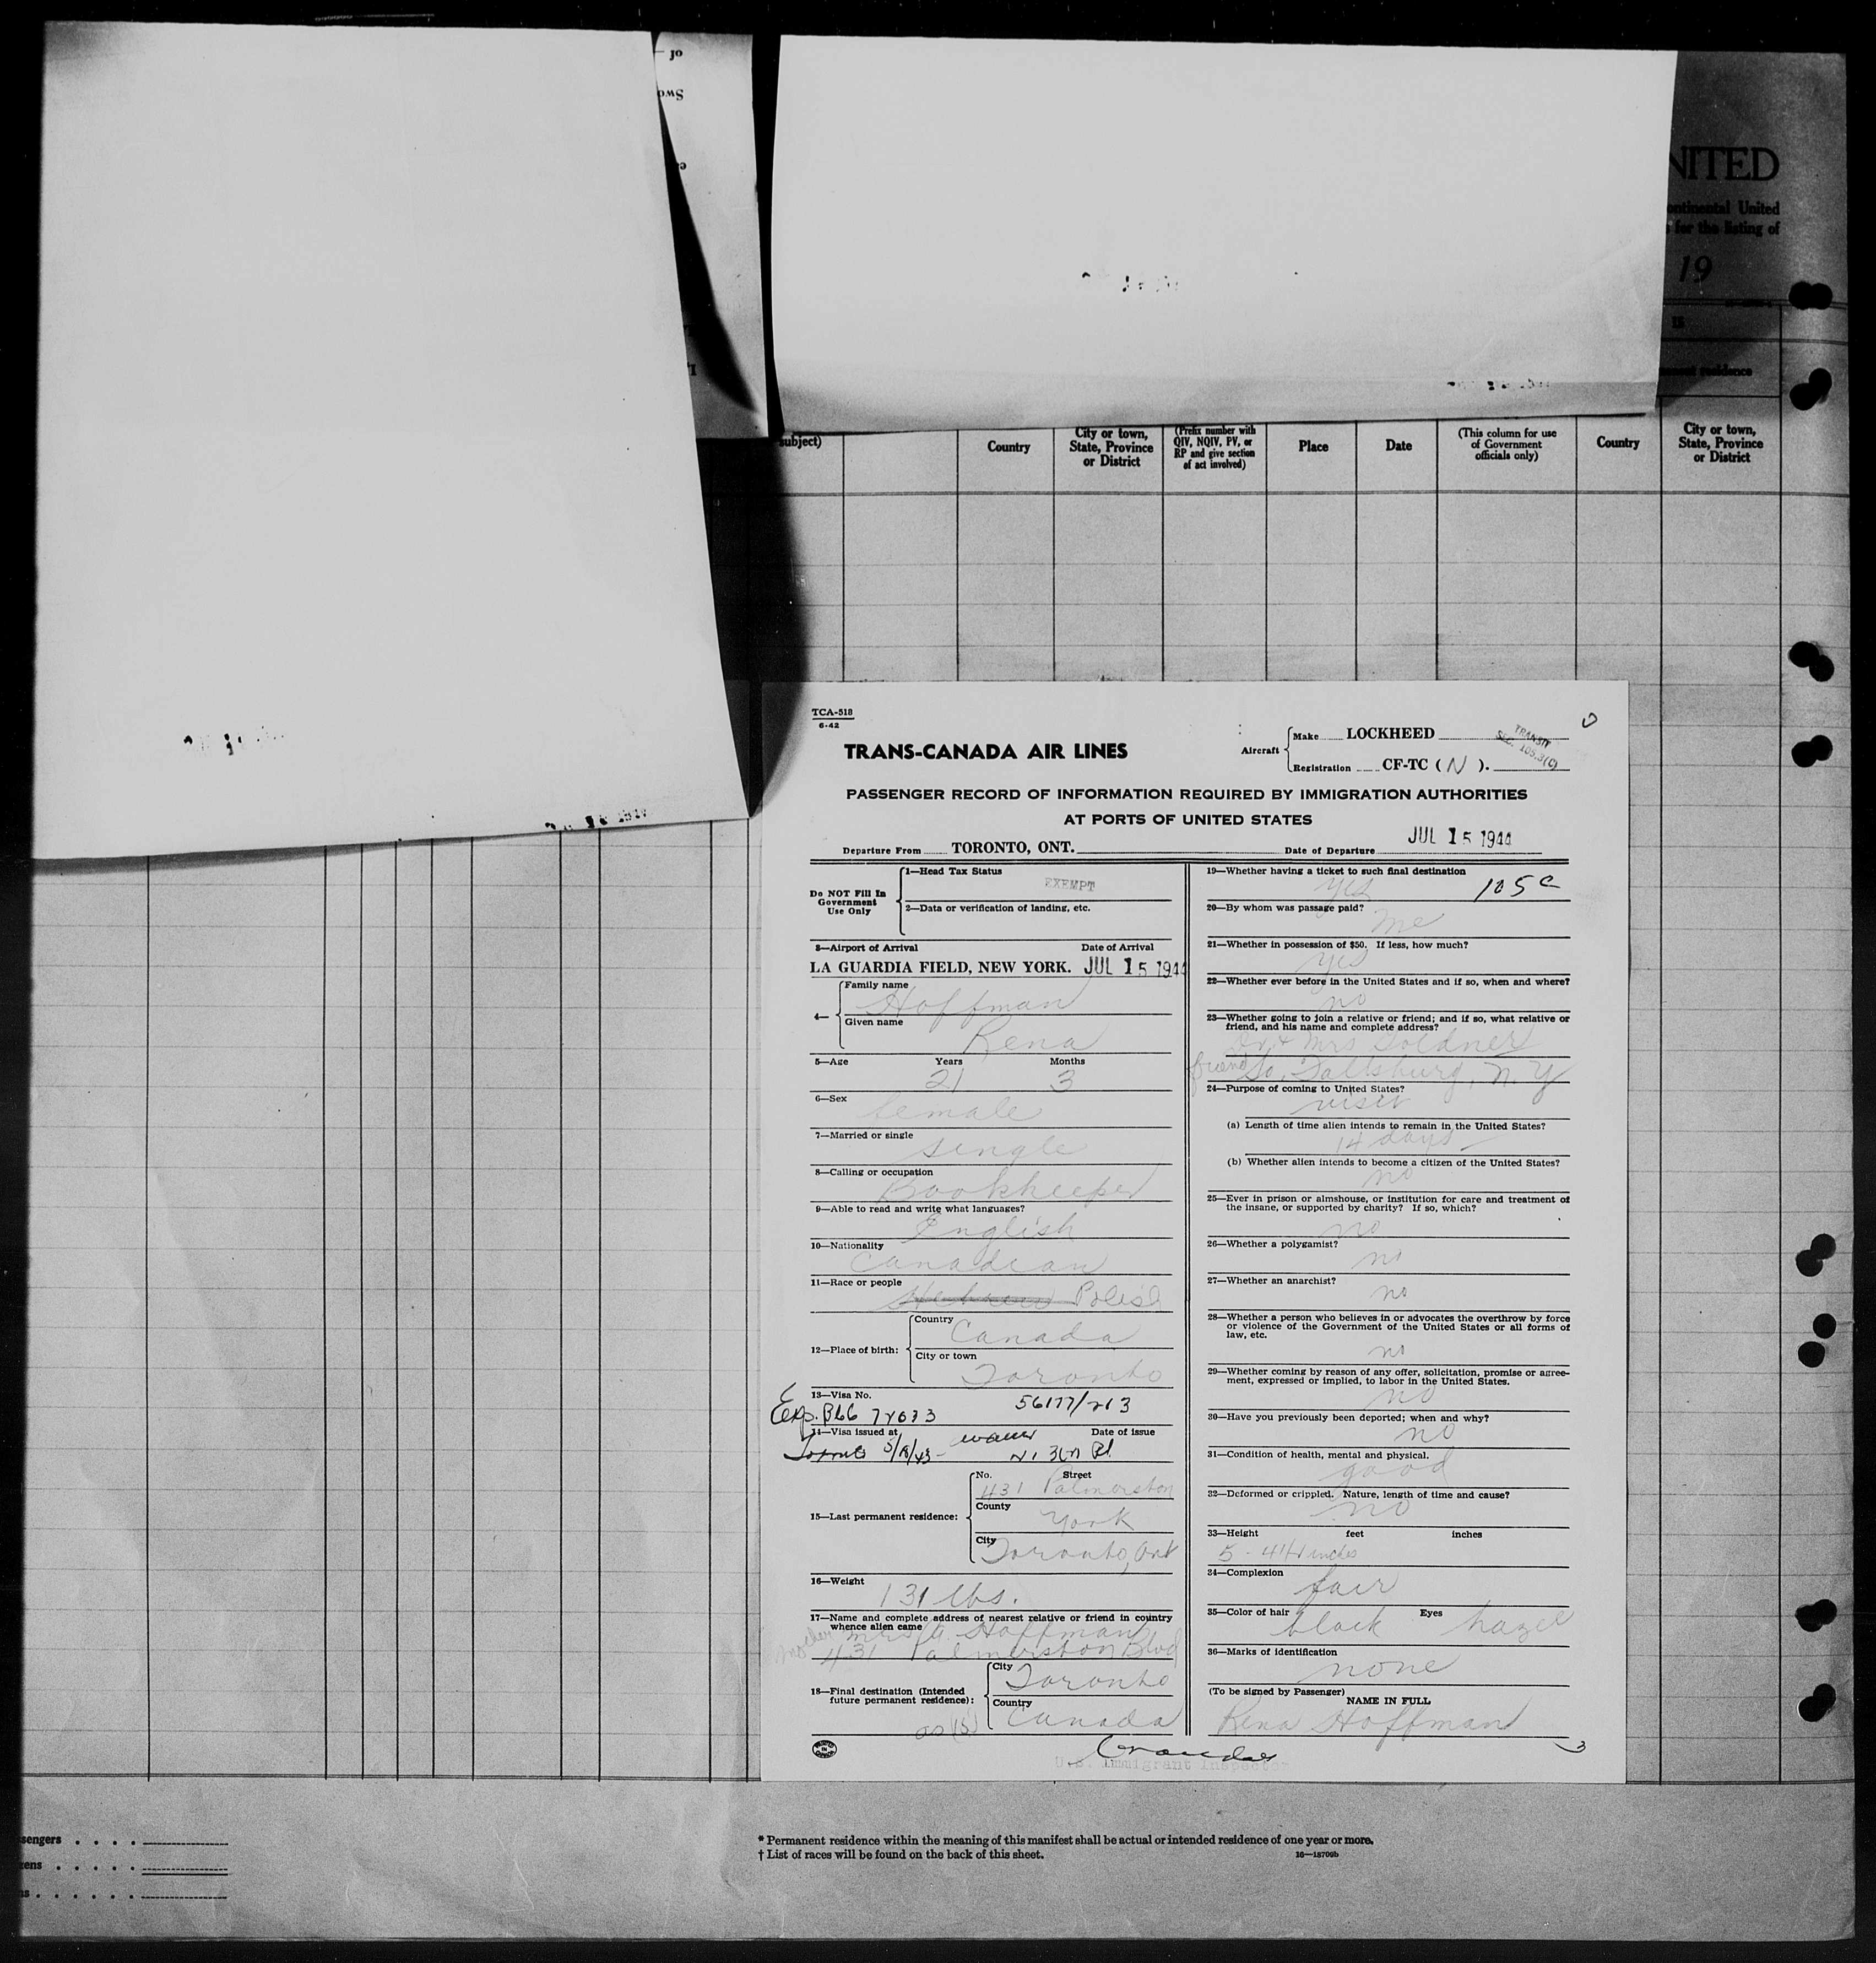 of
Swo
NITED
ontinental United
s for the listing of
19
15
residence
subject)
Country
City or town,
State, Province
or District
(Prefix number with
QIV, NQIV, PV, or
RP and give section
of act involved)
Place
Date
(This column for use
of Government
officials only)
Country
City or town,
State, Province
or District
TCA-518
6-42
TRANS-CANADA AIR LINES
Aircraft
Make LOCKHEED
Registration CF-TC ( N ).
TRANSIT
SEC. 105.3(C)
PASSENGER RECORD OF INFORMATION REQUIRED BY IMMIGRATION AUTHORITIES
AT PORTS OF UNITED STATES
Departure From TORONTO, ONT. Date of Departure JUL 15 1944
Do NOT Fill In
Government
Use Only
1—Head Tax Status
EXEMPT
2—Data or verification of landing, etc.
3—Airport of Arrival Date of Arrival
LA GUARDIA FIELD, NEW YORK. JUL 15 1944
4—
Family name
Hoffman
Given name
Rena
5—Age Years Months
21 3
6—Sex
female
7—Married or single
single
8—Calling or occupation
Bookkeeper
9—Able to read and write what languages?
English
10—Nationality
Canadian
11—Race or people
Hebrew Polish
12—Place of birth:
Country
Canada
City or town
Toronto
13—Visa No.
56177/213
14—Visa issued at Date of issue
Toronto 5/18/43
15—Last permanent residence:
No. Street
431 Palmerston
County
York
City
Toronto, Ont
16—Weight
131 lbs.
17—Name and complete address of nearest relative or friend in country
whence alien came
mother Mrs G. Hoffman
431 Palmerston Blvd
18—Final destination (Intended
future permanent residence):
City
Toronto
Country
Canada
as (15)
19—Whether having a ticket to such final destination
yes 105 c
20—By whom was passage paid?
me
21—Whether in possession of $50. If less, how much?
yes
22—Whether ever before in the United States and if so, when and where?
no
23—Whether going to join a relative or friend; and if so, what relative or
friend, and his name and complete address?
Dr & Mrs Goldner
friend So. Fallsburg, N.Y
24—Purpose of coming to United States?
visit
(a) Length of time alien intends to remain in the United States?
14 days
(b) Whether alien intends to become a citizen of the United States?
no
25—Ever in prison or almshouse, or institution for care and treatment of
the insane, or supported by charity? If so, which?
no
26—Whether a polygamist?
no
27—Whether an anarchist?
no
28—Whether a person who believes in or advocates the overthrow by force
or violence of the Government of the United States or all forms of
law, etc.
no
29—Whether coming by reason of any offer, solicitation, promise or agree-
ment, expressed or implied, to labor in the United States.
no
30—Have you previously been deported; when and why?
no
31—Condition of health, mental and physical.
good
32—Deformed or crippled. Nature, length of time and cause?
no
33—Height feet inches
5 - 4 1/2 inches
34—Complexion
fair
35—Color of hair black Eyes hazel
36—Marks of identification
none
(To be signed by Passenger)
NAME IN FULL
Rena Hoffman
3
U.S. Immigrant Inspector
ssengers
zens
* Permanent residence within the meaning of this manifest shall be actual or intended residence of one year or more.
† List of races will be found on the back of this sheet.
16—18709b